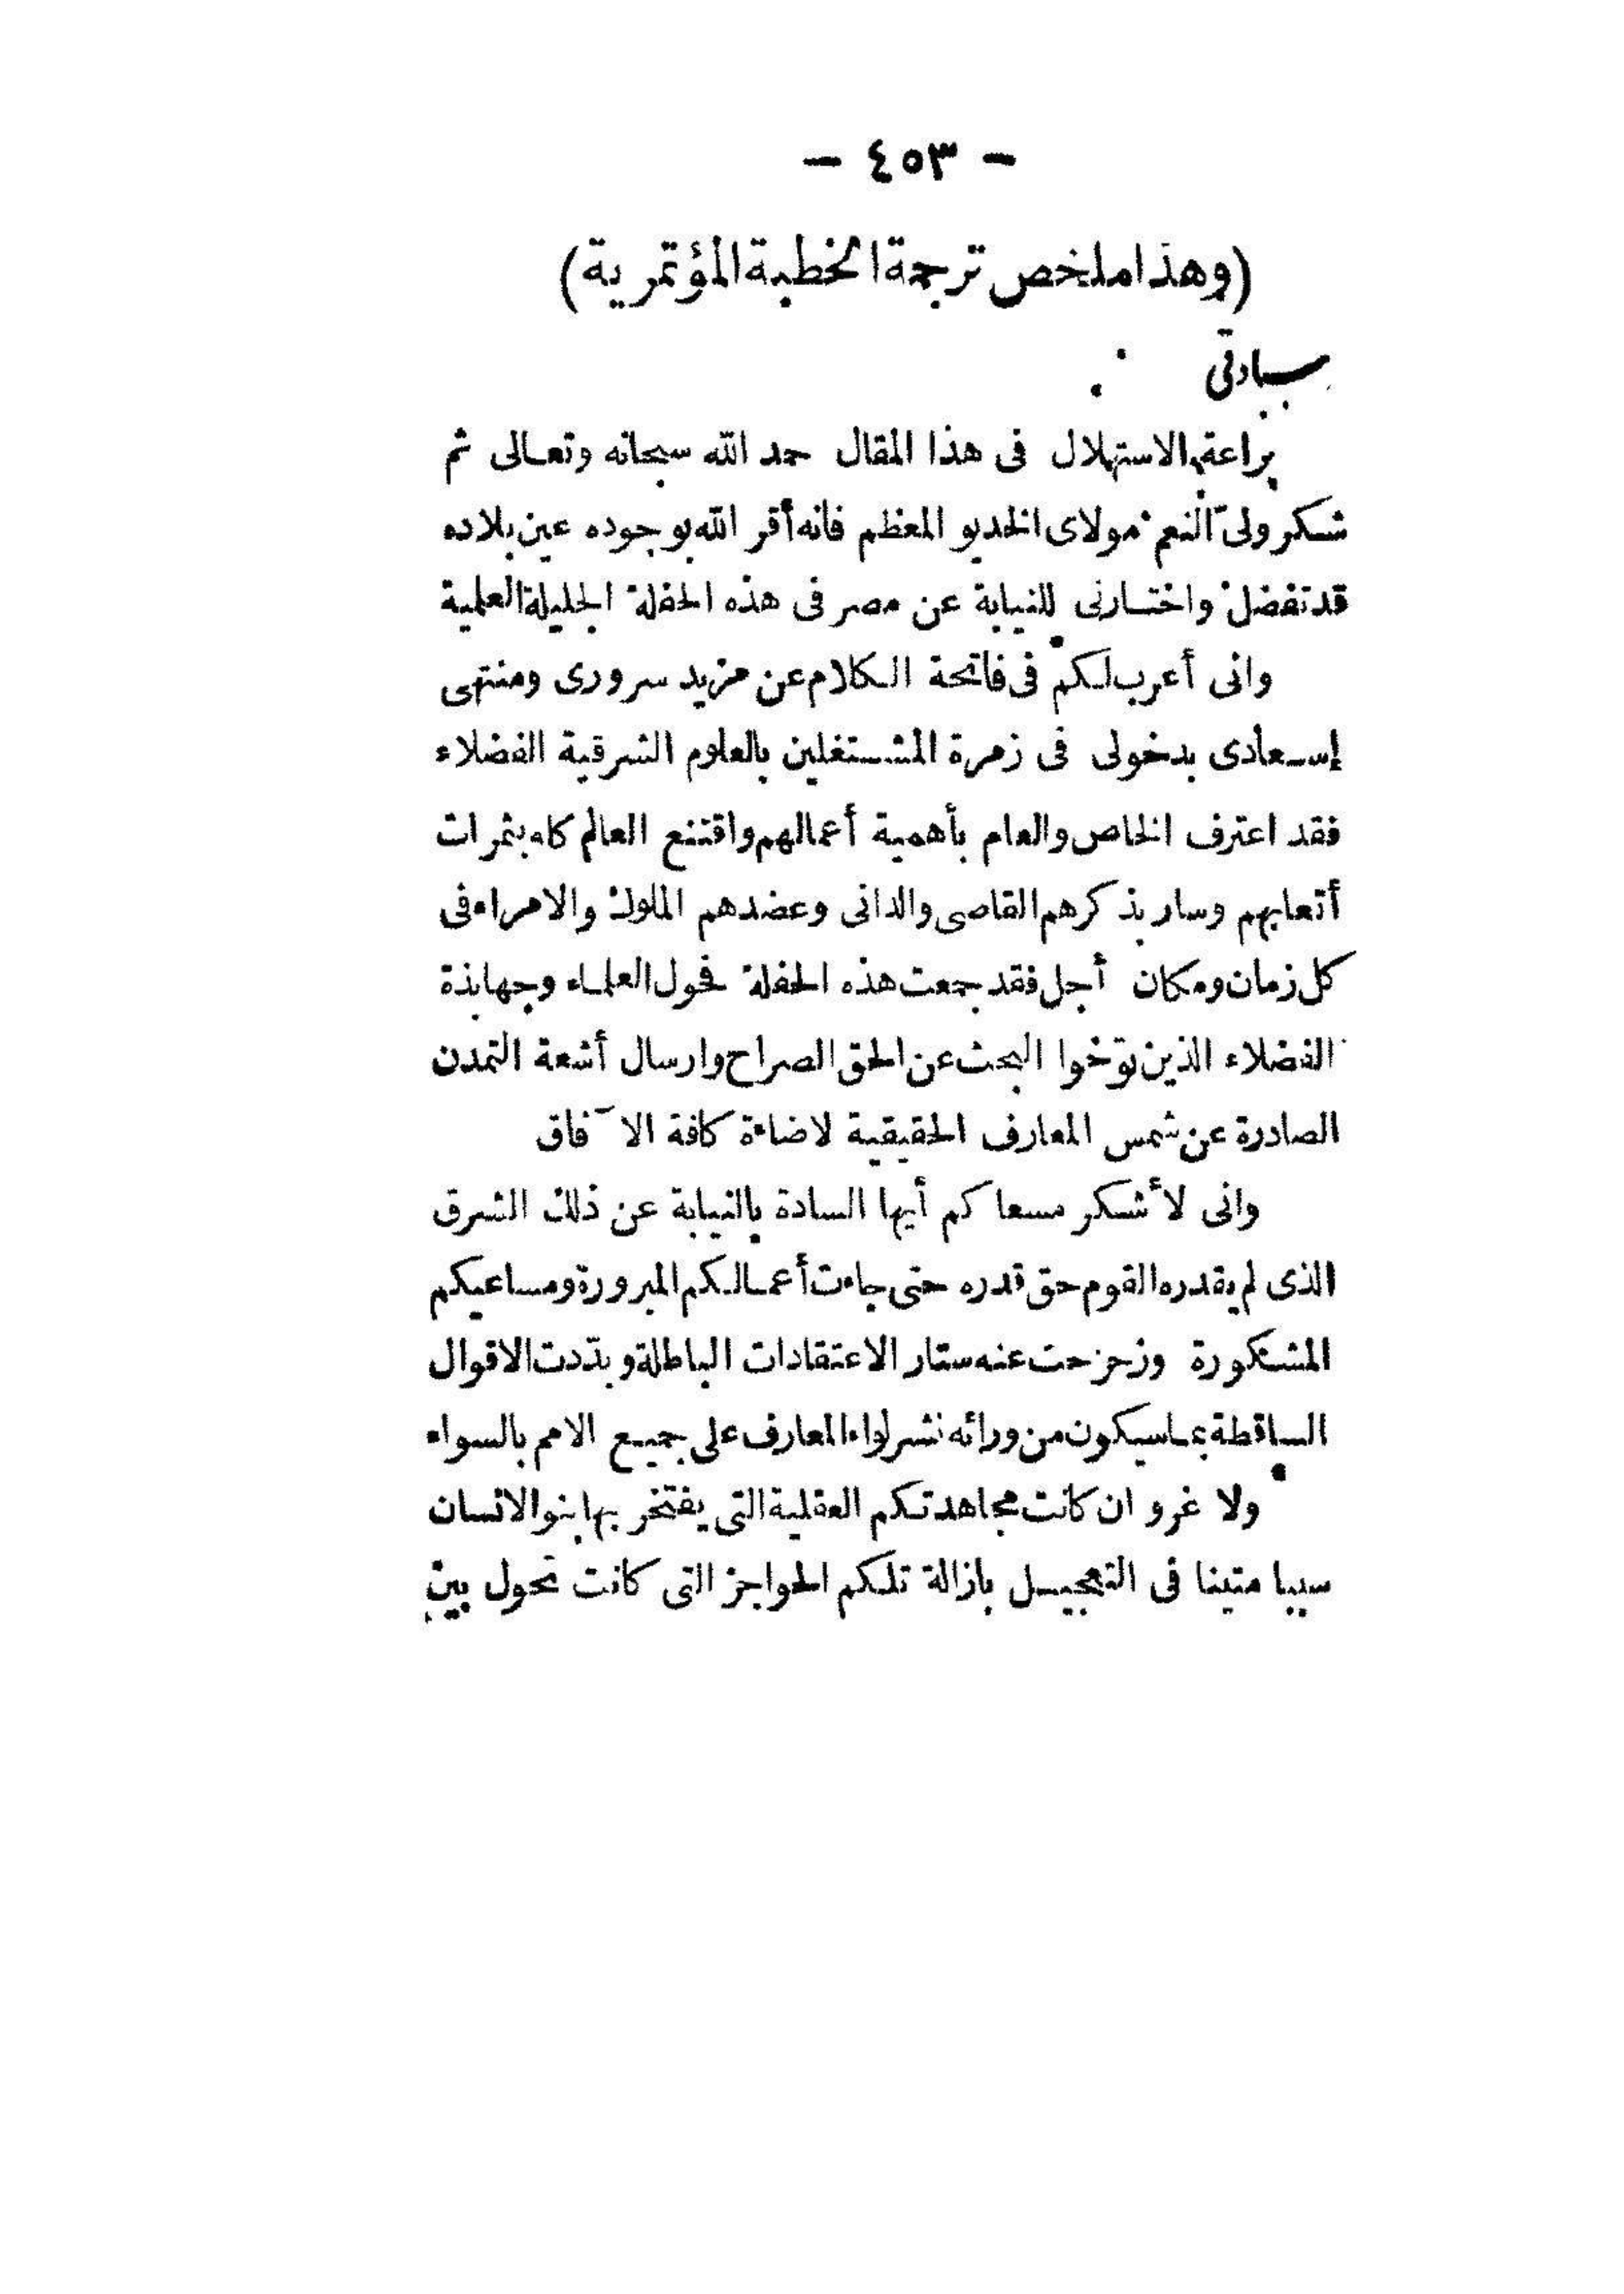 — ٤٥٣ —
(وهذا ملخص ترجمة الخطبة المؤتمرية)
سادتى
براعة الاستهلال فى هذا المقال حمد الله سبحانه وتعالى ثم
شكر ولىّ النعم مولاى الخديو المعظم فانه أقر الله بوجوده عين بلاده
قد تفضل واختارنى للنيابة عن مصر فى هذه الحفلة الجليلة العلمية
وانى أعرب لكم فى فاتحة الكلام عن مزيد سرورى ومنتهى
إسعادى بدخولى فى زمرة المشتغلين بالعلوم الشرقية الفضلاء
فقد اعترف الخاص والعام بأهمية أعمالهم واقتنع العالم كله بثمرات
أتعابهم وسار بذكرهم القاصى والدانى وعضدهم الملوك والامراء فى
كل زمان ومكان أجل فقد جمعت هذه الحفلة فحول العلماء وجهابذة
الفضلاء الذين توّخوا البحث عن الحق الصراح وارسال أشعة التمدن
الصادرة عن شمس المعارف الحقيقية لاضاءة كافة الآفاق
وانى لأشكر مسعاكم أيها السادة بالنيابة عن ذلك الشرق
الذى لم يقدره القوم حق قدره حتى جاءت أعمالكم المبرورة ومساعيكم
المشكورة وزحزحت عنه ستار الاعتقادات الباطلة وبدّدت الاقوال
الساقطة بما سيكون من ورائه نشر لواء المعارف على جميع الامم بالسواء
ولا غرو ان كانت مجاهدتكم العقلية التى يفتخر بها بنو الانسان
سببا متينا فى التعجيل بازالة تلكم الحواجز التى كانت تحول بين